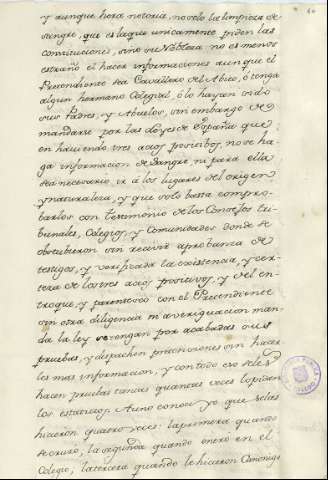 y aunque fuera notoria, no solo la limpieza de
sangre, que es la que unicamente piden las
constituciones, sino su Nobleza no es menos
estraño el hacer informaciones aunque el
Pretendiente sea Cavallero de Abito, ò tenga
algun hermano Colegial, ò lo hayan sido
sus Padres, y Abuelos, sin embargo de
mandarse por las Leyes de España que
en haviendo tres actos positibos, no se ha
ga informacion de Sangre ni para ella
sea necesario ir á los lugares del origen
y naturaleza, y que solo basta compro
barlos con testimonio de los Consejos tri
bunales, Colegios, y Comunidades donde se
obtubieron sin recivir aprobanza de
testigos, y verificada la existencia, y cer
teza de los tres actos positivos, y del en
tronque, y parentesco con el Pretendiente
sin otra diligencia ni averiguacion man
da la ley se tengan por acabadas sus
pruebas, y despachen provisiones sin hacer
les mas informacion, y con todo eso se les
hacen pruebas tantas quantas veces lo piden
los estatutos. A uno conoci yo que se las
hicieron quatro veces: la primera quando
se cruzò, la segunda quando entrò en el
Colegio; la tercera quando le hicieron Canonigo